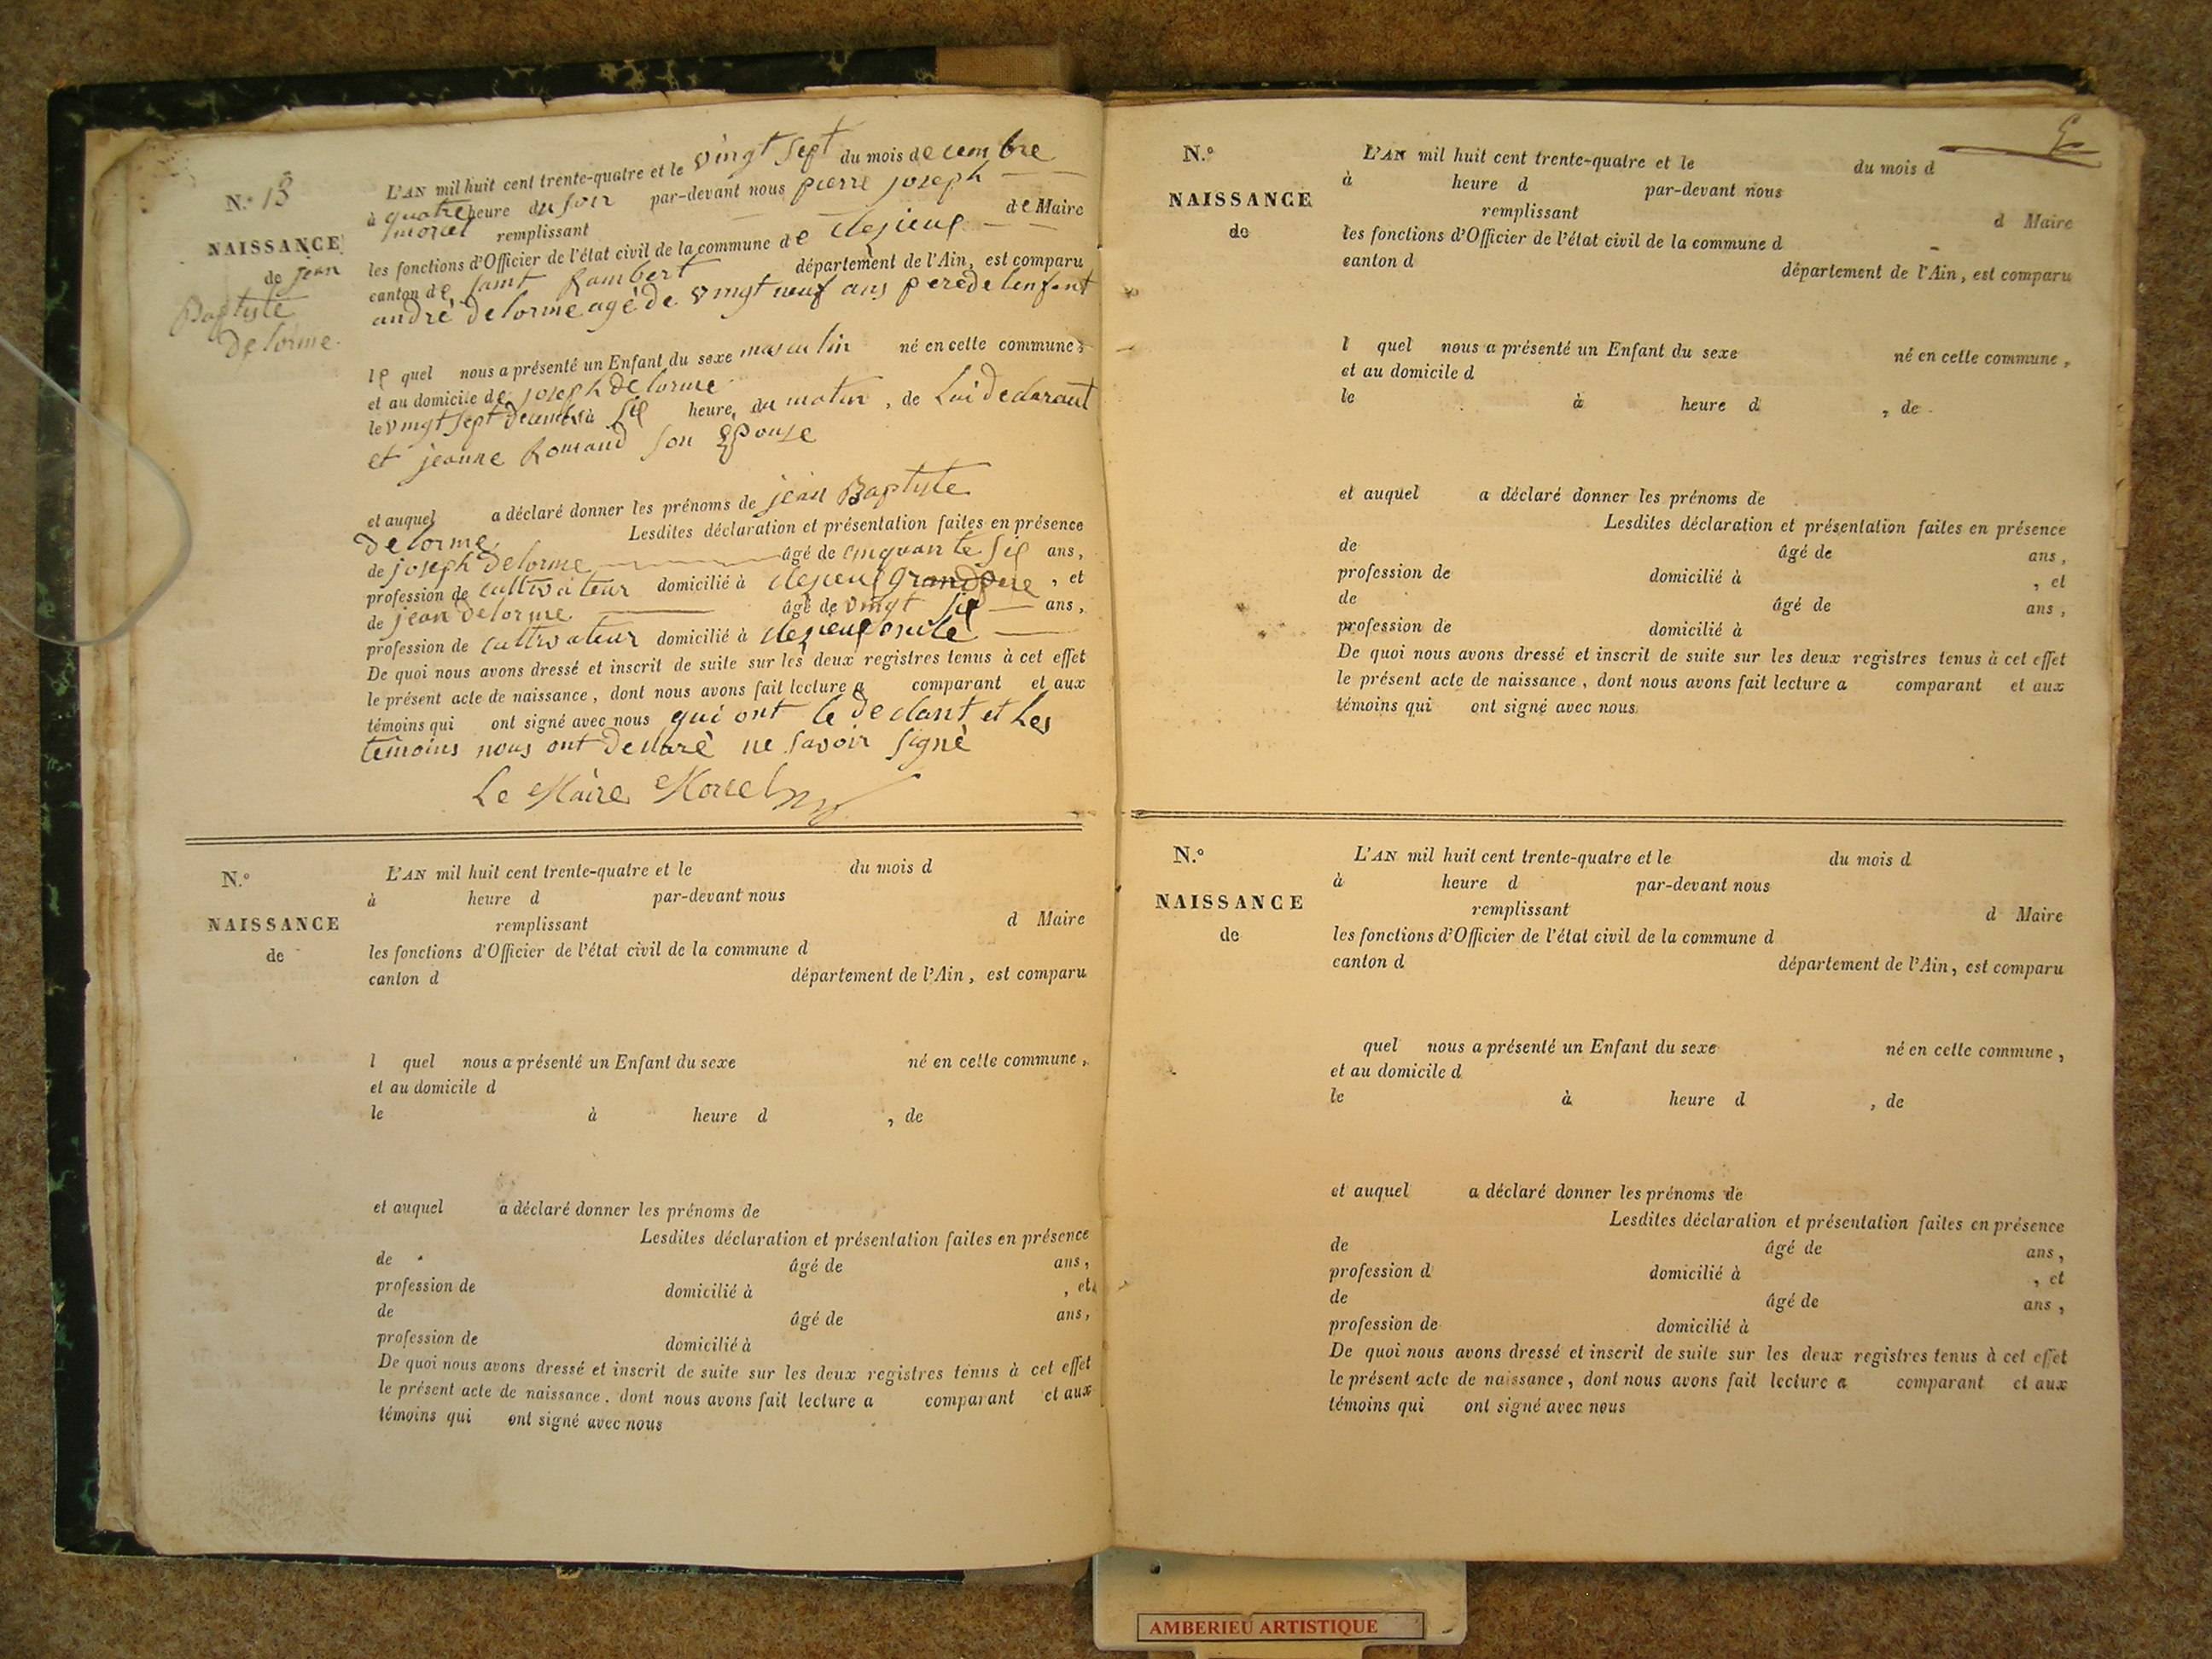 N.° 13
NAISSANCE
de jean
Baptiste
Delorme.
L'AN mil huit cent trente-quatre et le vingt sept du mois decembre
à quatre heure du soir par-devant nous pierre joseph
morel remplissant de Maire
les fonctions d'Officier de l'état civil de la commune de clezieux
canton de saint Rambert département de l'Ain, est comparu
andré delorme agé de vingt neuf ans pere de lenfant
le quel nous a présenté un Enfant du sexe masculin né en cette commune,
et au domicile de joseph delorme
le vingt sept decembre à six heure, du matin, de Lui declarant
et jeanne Romand son Epouse
et auquel a déclaré donner les prénoms de jean Baptiste
Delorme. Lesdites déclaration et présentation faites en présence
de joseph Delorme âgé de cinquante six ans,
profession de cultivateur domicilié à clezieux grand pere, et
de jean delorme âgé de vingt six ans,
profession de cultivateur domicilié à clezieux oncle
De quoi nous avons dressé et inscrit de suite sur les deux registres tenus à cet effet
le présent acte de naissance, dont nous avons fait lecture a comparant et aux
témoins qui ont signé avec nous qui ont le declant et Les
temoins nous ont declaré ne savoir signé
Le Maire Morel
N.°
NAISSANCE
de
L'AN mil huit cent trente-quatre et le du mois d
à heure d par-devant nous
remplissant d Maire
les fonctions d'Officier de l'état civil de la commune d
canton d département de l'Ain, est comparu
l quel nous a présenté un Enfant du sexe né en cette commune,
et au domicile d
le à heure d , de
et auquel a déclaré donner les prénoms de
Lesdites déclaration et présentation faites en présence
de âgé de ans,
profession de domicilié à , et
de âgé de ans,
profession de domicilié à
De quoi nous avons dressé et inscrit de suite sur les deux registres tenus à cet effet
le présent acte de naissance, dont nous avons fait lecture a comparant et aux
témoins qui ont signé avec nous
N.°
NAISSANCE
de
L'AN mil huit cent trente-quatre et le du mois d
à heure d par-devant nous
remplissant d Maire
les fonctions d'Officier de l'état civil de la commune d
canton d département de l'Ain, est comparu
l quel nous a présenté un Enfant du sexe né en cette commune,
et au domicile d
le à heure d , de
et auquel a déclaré donner les prénoms de
Lesdites déclaration et présentation faites en présence
de âgé de ans,
profession de domicilié à , et
de âgé de ans,
profession de domicilié à
De quoi nous avons dressé et inscrit de suite sur les deux registres tenus à cet effet
le présent acte de naissance, dont nous avons fait lecture a comparant et aux
témoins qui ont signé avec nous
N.°
NAISSANCE
de
L'AN mil huit cent trente-quatre et le du mois d
à heure d par-devant nous
remplissant d Maire
les fonctions d'Officier de l'état civil de la commune d
canton d département de l'Ain, est comparu
quel nous a présenté un Enfant du sexe né en cette commune,
et au domicile d
le à heure d , de
et auquel a déclaré donner les prénoms de
Lesdites déclaration et présentation faites en présence
de âgé de ans,
profession d domicilié à , et
de âgé de ans,
profession de domicilié à
De quoi nous avons dressé et inscrit de suite sur les deux registres tenus à cet effet
le présent acte de naissance, dont nous avons fait lecture a comparant et aux
témoins qui ont signé avec nous
AMBERIEU ARTISTIQUE